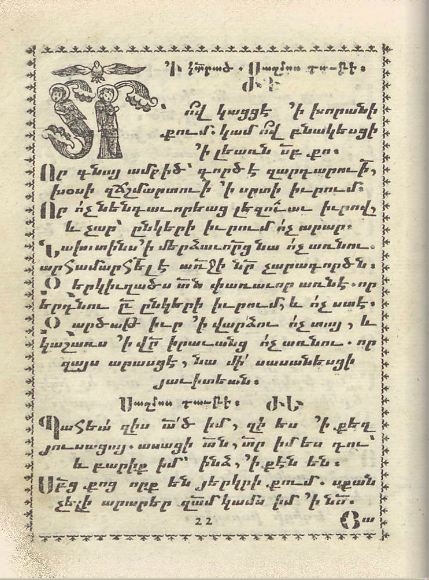 Սաղմոս դաւթի:
ԺԴ
Տր՛ ո՞վ կացցէ ՚ի խորանի
քում. կամ ո՞վ բնակեսցի
՚ի լեառն սբ քո:
Որ գնայ ամբիծ՝ գործէ զարդարուի,
խօսի զճշմարտուի ՚ի սրտի իւրում:
Որ ոչ նենգաւորեաց լեզուաւ իւրով,
և չար՝ ընկերի իւրում ոչ արար.
Նախատինս ՚ի մերձաւորց նա ոչ առնու.
արհամարհել է առջի նր չարագործն.
երկիւղածս տն փառաւոր առնէ. որ
երդնու ընկերի իւրում, և ոչ ստէ.
արծաթ իւր ՚ի վարձու ոչ տայ, և
կաշառս ՚ի վր իրաւանց ոչ առնու. որ
զայս արասցէ, նա մի՛ սասանեսցի
յաւիտեան:
Սաղմոս դաւթի: ԺԵ
Պահեա զիս ած իմ, զի ես ՚ի քեզ
յուսացայ. ասացի տն, տր իմ ես դու՝
և բարիք իմ՝ ինձ, ՚ի քէն են:
Սրբց քոց որք են յերկրի քում. սքան
չելի արարեր զամ կամս իմ ՚ի նս.
22